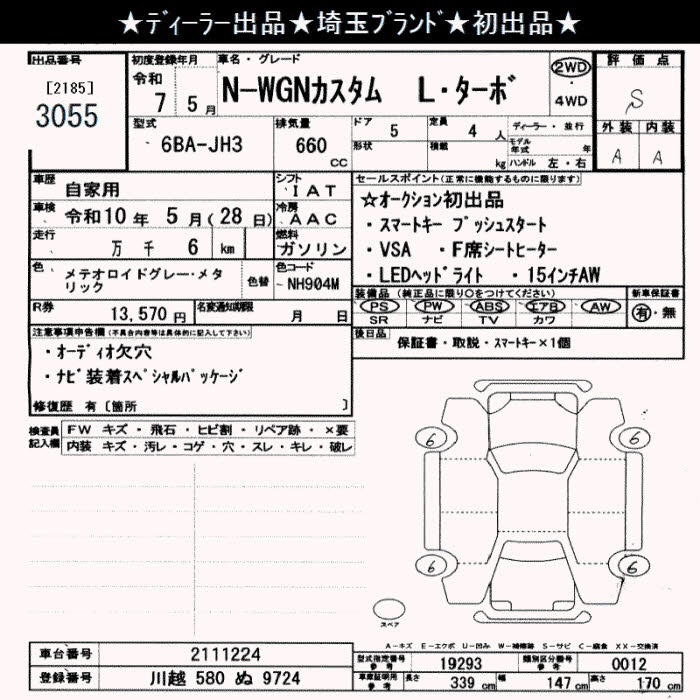 ★ディーラー出品★埼玉ブランド★初出品★
出品番号
[2185]
3055
初度登録年月
令和
7年 5月
車名・グレード
N-WGNカスタム L・ターボ
2WD
・
4WD
評価点
S
外装 内装
A A
型式
6BA-JH3
排気量
660
CC
ドア 5
定員 4人
形状
積載 kg
ディーラー・並行
モデル年式 年
ハンドル 左・右
車歴 自家用
シフト IAT
車検 令和10年 5月(28日)
冷房 AAC
走行 万 千 6 km
燃料 ガソリン
色 メテオロイドグレー・メタリック
色替
色コード NH904M
R券 13,570円
名変通知期限 月 日
セールスポイント(正常に機能するものに限ります)
☆オークション初出品
・スマートキー プッシュスタート
・VSA ・F席シートヒーター
・LEDヘッドライト ・15インチAW
装備品 (純正品に限り○をつけてください)
PS PW ABS エアB AW
SR ナビ TV カワ
新車保証書
有・無
後日品 保証書・取説・スマートキー×1個
注意事項申告欄(不具合内容等は具体的に記入して下さい)
・オーディオ欠穴
・ナビ装着スペシャルパッケージ
修復歴 有〔箇所 〕
検査員記入欄
FW キズ・飛石・ヒビ割・リペア跡・×要
内装 キズ・汚レ・コゲ・穴・スレ・キレ・破レ
6 6
6 6
スペア
A-キズ E-エクボ U-凹み W-補修跡 S-サビ C-腐食 XX-交換済
車台番号 2111224
登録番号 川越 580 ぬ 9724
型式指定番号 参考 19293
類別区分番号 参考 0012
車庫証明用 参考 長さ 339cm 幅 147cm 高さ 170cm